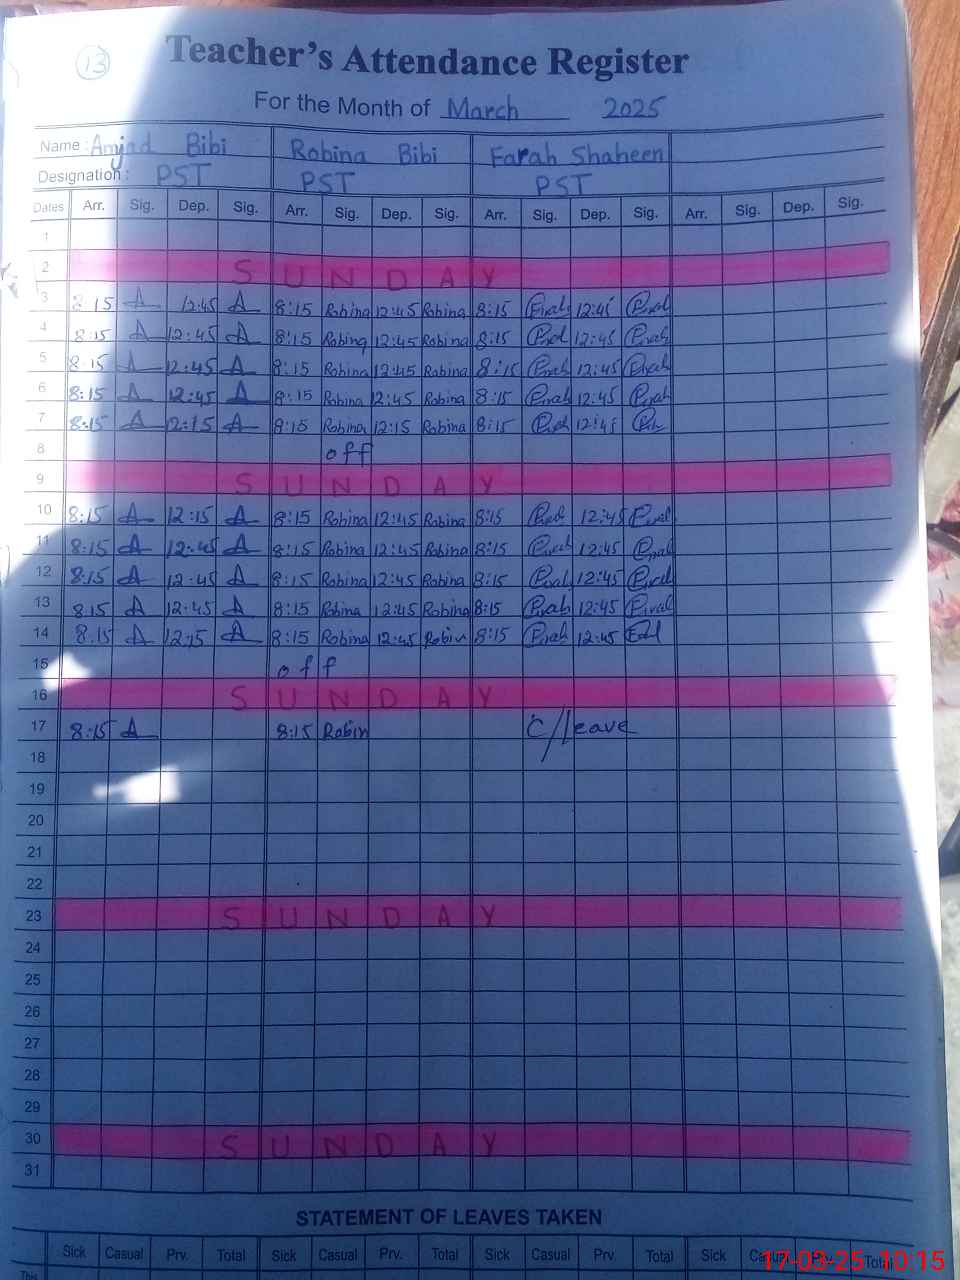 13
Teacher's Attendance Register
For the Month of March 2025
Name : Amjad Bibi Robina Bibi Farah Shaheen
Designation : PST PST PST
Dates Arr. Sig. Dep. Sig. Arr. Sig. Dep. Sig. Arr. Sig. Dep. Sig. Arr. Sig. Dep. Sig.
1
2 SUNDAY
3 8:15 A 12:45 A 8:15 Robina 12:45 Robina 8:15 12:45
4 8:15 A 12:45 A 8:15 Robina 12:45 Robina 8:15 12:45
5 8:15 A 12:45 A 8:15 Robina 12:45 Robina 8:15 12:45
6 8:15 A 12:45 A 8:15 Robina 12:45 Robina 8:15 12:45
7 8:15 A 12:15 A 8:15 Robina 12:15 Robina 8:15
8 off
9 SUNDAY
10 8:15 A 12:15 A 8:15 Robina 12:45 Robina 8:15 12:45
11 8:15 A 12:45 A 8:15 Robina 12:45 Robina 8:15 12:45
12 8:15 A 12:45 A 8:15 Robina 12:45 Robina 8:15 12:45
13 8:15 A 12:45 A 8:15 Robina 12:45 Robina 8:15 12:45
14 8:15 A 12:15 A 8:15 Robina 12:45 Robin 8:15 12:45
15 off
16 SUNDAY
17 8:15 A 8:15 Robin C/leave
18
19
20
21
22
23 SUNDAY
24
25
26
27
28
29
30 SUNDAY
31
STATEMENT OF LEAVES TAKEN
Sick Casual Prv. Total Sick Casual Prv. Total Sick Casual Prv. Total Sick Casual Prv. Total
This
17-03-25 10:15